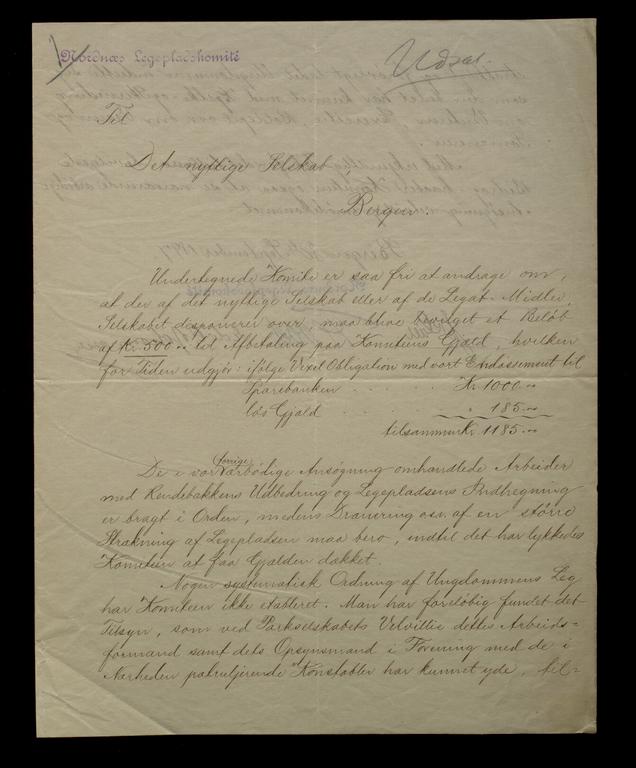 Nordnæs Legepladskomité
Udsat.
Til
Det nyttige Selskab
Bergen.
Undertegnede Komite er saa fri at andrage om,
at der af det nyttige Selskab eller af de Legat-Midler,
Selskabet disponerer over, maa blive bevilget et Beløb
af Kr 500 00 til Afbetaling paa Komiteens Gjæld, hvilken
for Tiden udgjør: ifølge Vexel Obligation med vort Endossement til
Sparebanken . . . . . Kr. 1000 00
løs Gjæld . . . . . " 185 00
tilsammen Kr. 1185 00
De i vor forrige ærbødige Ansøgning omhandlede Arbeider
med Rendebakkens Udbedring og Legepladsens Indhegning
er bragt i Orden, medens Drænering osv. af en større
Strækning af Legepladsen maa bero, indtil det har lykkedes
Komiteen at faa Gjælden dækket.
Nogen systematisk Ordning af Ungdommens Leg
har Komiteen ikke etableret. Man har foreløbig fundet det
Tilsyn, som ved Parkselskabets Velvillie dettes Arbeids-
formand samt dets Opsynsmand i Forening med de i
Nærheden patruljerende Konstabler har kunnet yde, til-